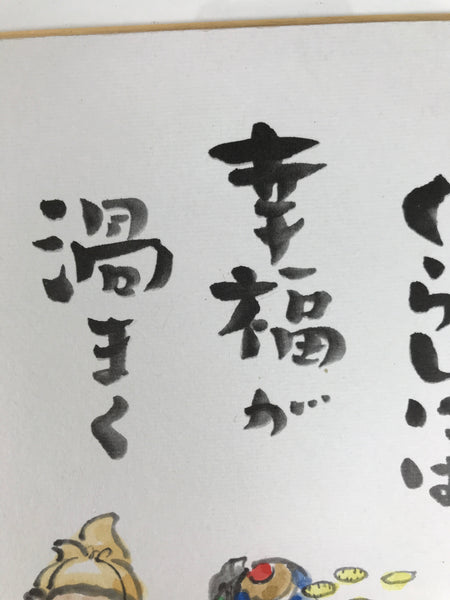 くらしには
幸福が
渦まく